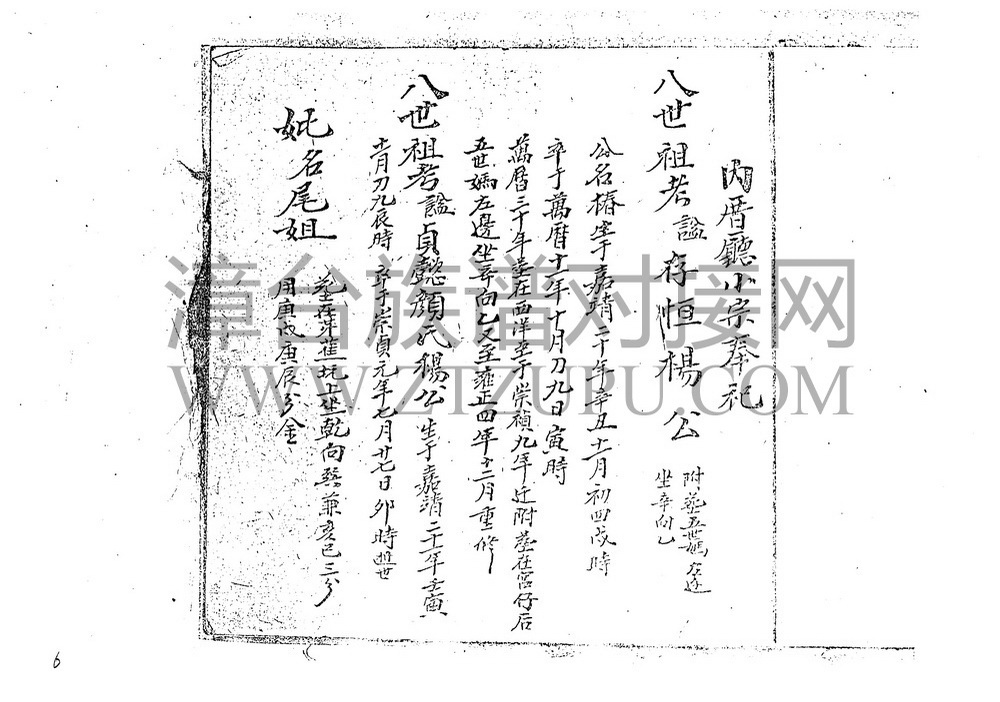 內厝廳小宗奉祀
八世祖考謚存恒楊公
附葬五世媽左边
坐辛向乙
公名椿生于嘉靖二十年辛丑十一月初四戌時
卒于萬曆十一年十月初九日寅時
萬曆三十年葬在西洋至于崇禎九年迁附葬在宮仔后
五世媽左邊坐辛向乙又至雍正四年十二月重修
八世祖考謚貞懿顏氏楊公生于嘉靖二十一年壬寅
十一月初九辰時卒于崇貞元年七月廿七日卯時逝世
妣名尾姐
葬在芽蕉坑上坐乾向巽兼亥巳三分
用庚戌庚辰分金
漳台族谱对接网
WWW.ZTZUPU.COM
6